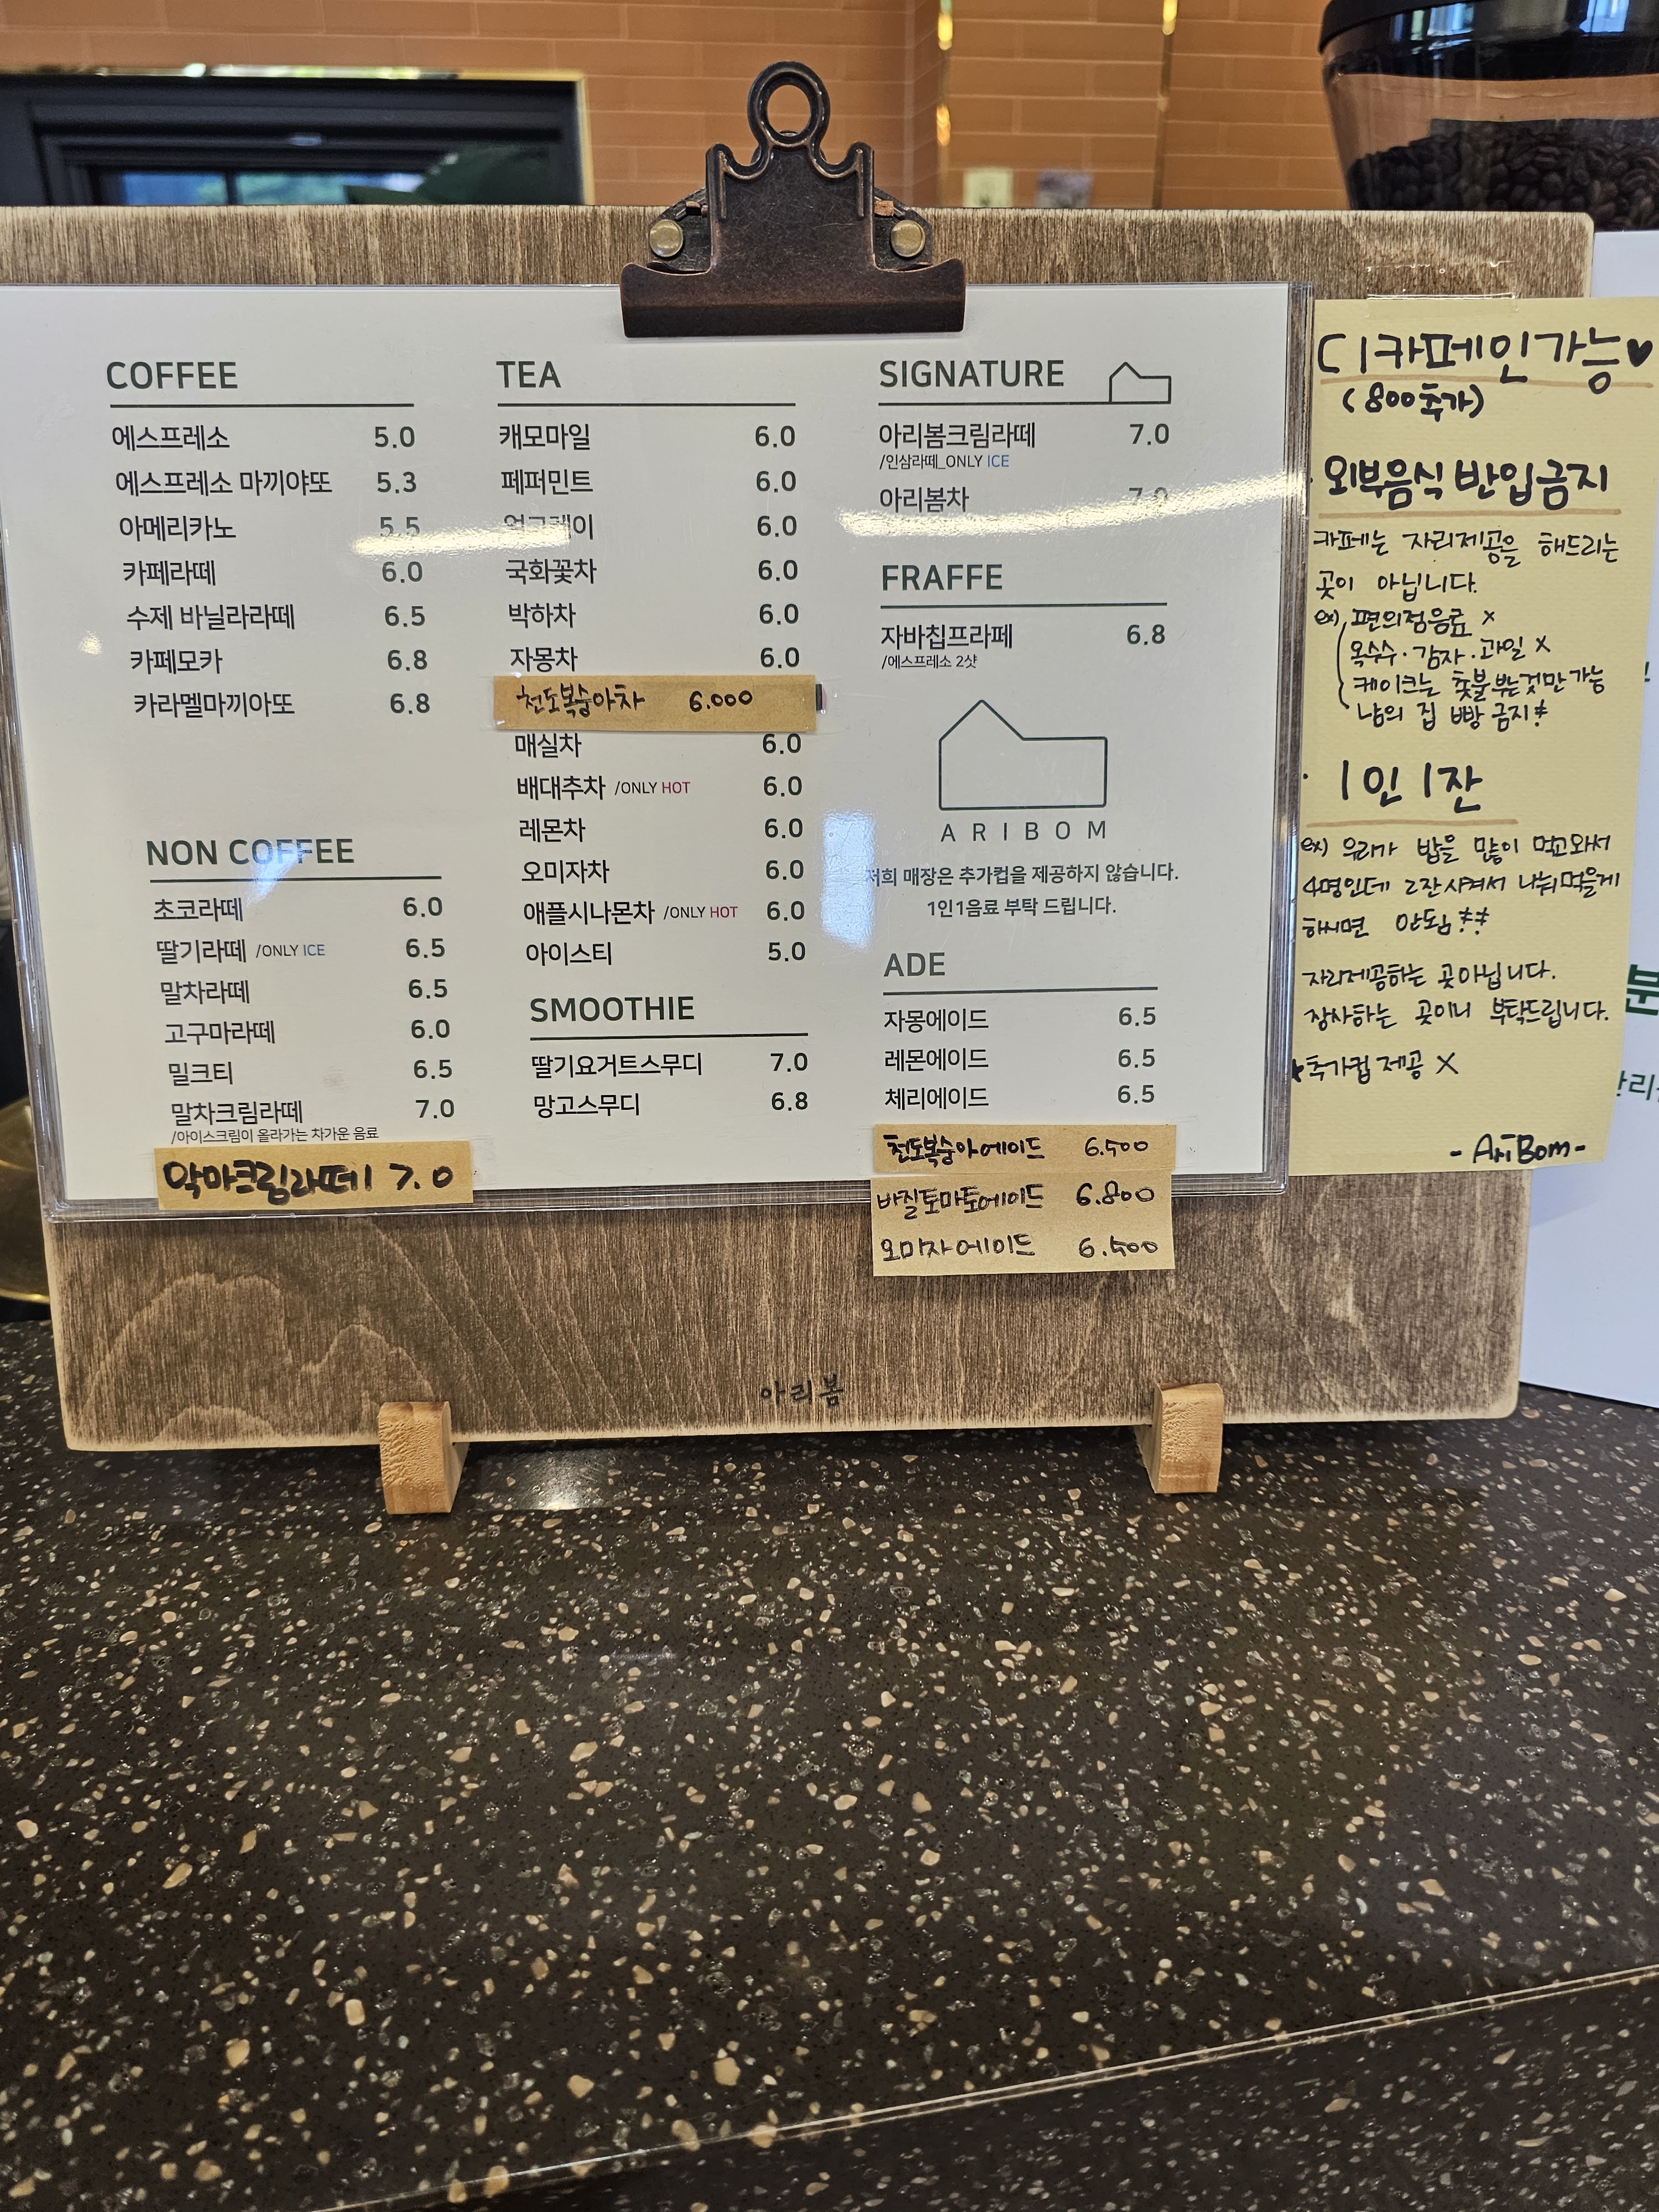 COFFEE
에스프레소 5.0
에스프레소 마끼야또 5.3
아메리카노 5.5
카페라떼 6.0
수제 바닐라라떼 6.5
카페모카 6.8
카라멜마끼아또 6.8
NON COFFEE
초코라떼 6.0
딸기라떼 /ONLY ICE 6.5
말차라떼 6.5
고구마라떼 6.0
밀크티 6.5
말차크림라떼 7.0
/아이스크림이 올라가는 차가운 음료
악마크림라떼 7.0
TEA
캐모마일 6.0
페퍼민트 6.0
얼그레이 6.0
국화꽃차 6.0
박하차 6.0
자몽차 6.0
천도복숭아차 6.000
매실차 6.0
배대추차 /ONLY HOT 6.0
레몬차 6.0
오미자차 6.0
애플시나몬차 /ONLY HOT 6.0
아이스티 5.0
SMOOTHIE
딸기요거트스무디 7.0
망고스무디 6.8
SIGNATURE
아리봄크림라떼 7.0
/인삼라떼_ONLY ICE
아리봄차 7.0
FRAFFE
자바칩프라페 6.8
/에스프레소 2샷
ARIBOM
저희 매장은 추가컵을 제공하지 않습니다.
1인1음료 부탁 드립니다.
ADE
자몽에이드 6.5
레몬에이드 6.5
체리에이드 6.5
천도복숭아에이드 6.500
바질토마토에이드 6.800
오미자에이드 6.500
아리봄
디카페인가능♥
(800추가)
· 외부음식 반입금지
카페는 자리제공을 해드리는
곳이 아닙니다.
ex) 편의점음료 x
옥수수·감자·과일 x
케이크는 촛불부는것만가능
남의 집 빵 금지!
· 1인 1잔
ex) 우리가 밥을 많이 먹고와서
4명인데 2잔시켜서 나눠먹을게
하시면 안됨!!
자리제공하는 곳아닙니다.
장사하는 곳이니 부탁드립니다.
★추가컵 제공 X
- AriBom -
분